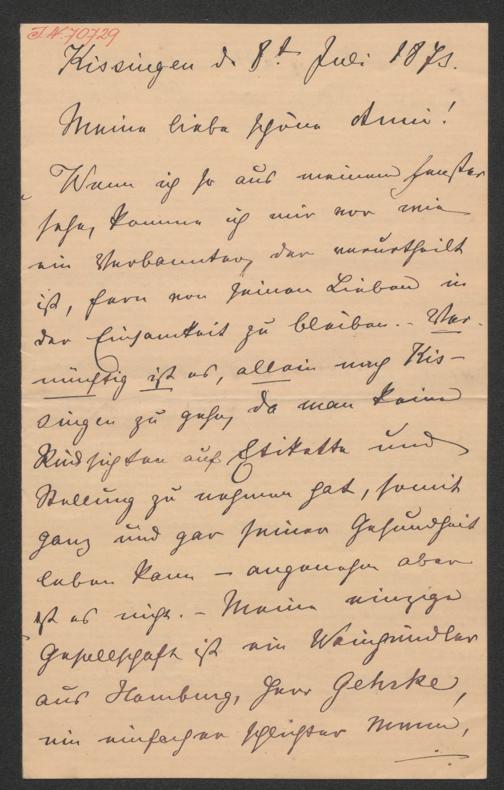 I.N. 70729
Kissingen d. 8t Juli 1875.
Meine liebe schöne Anni!
Wenn ich so aus meinem Fenster
sehe, komme ich mir vor wie
ein Verbannter, der verurtheilt
ist, fern von seinen Lieben in
der Einsamkeit zu bleiben. - Ver-
nünftig ist es, allein nach Kis-
singen zu gehen, da man keine
Rücksichten auf Etikette und
Stellung zu nehmen hat, somit
ganz und gar seiner Gesundheit
leben kann - angenehm aber
ist es nicht. - Meine einzige
Gesellschaft ist ein Weinhändler
aus Hamburg, Herr Gehrke,
ein einfacher schlichter Mann,